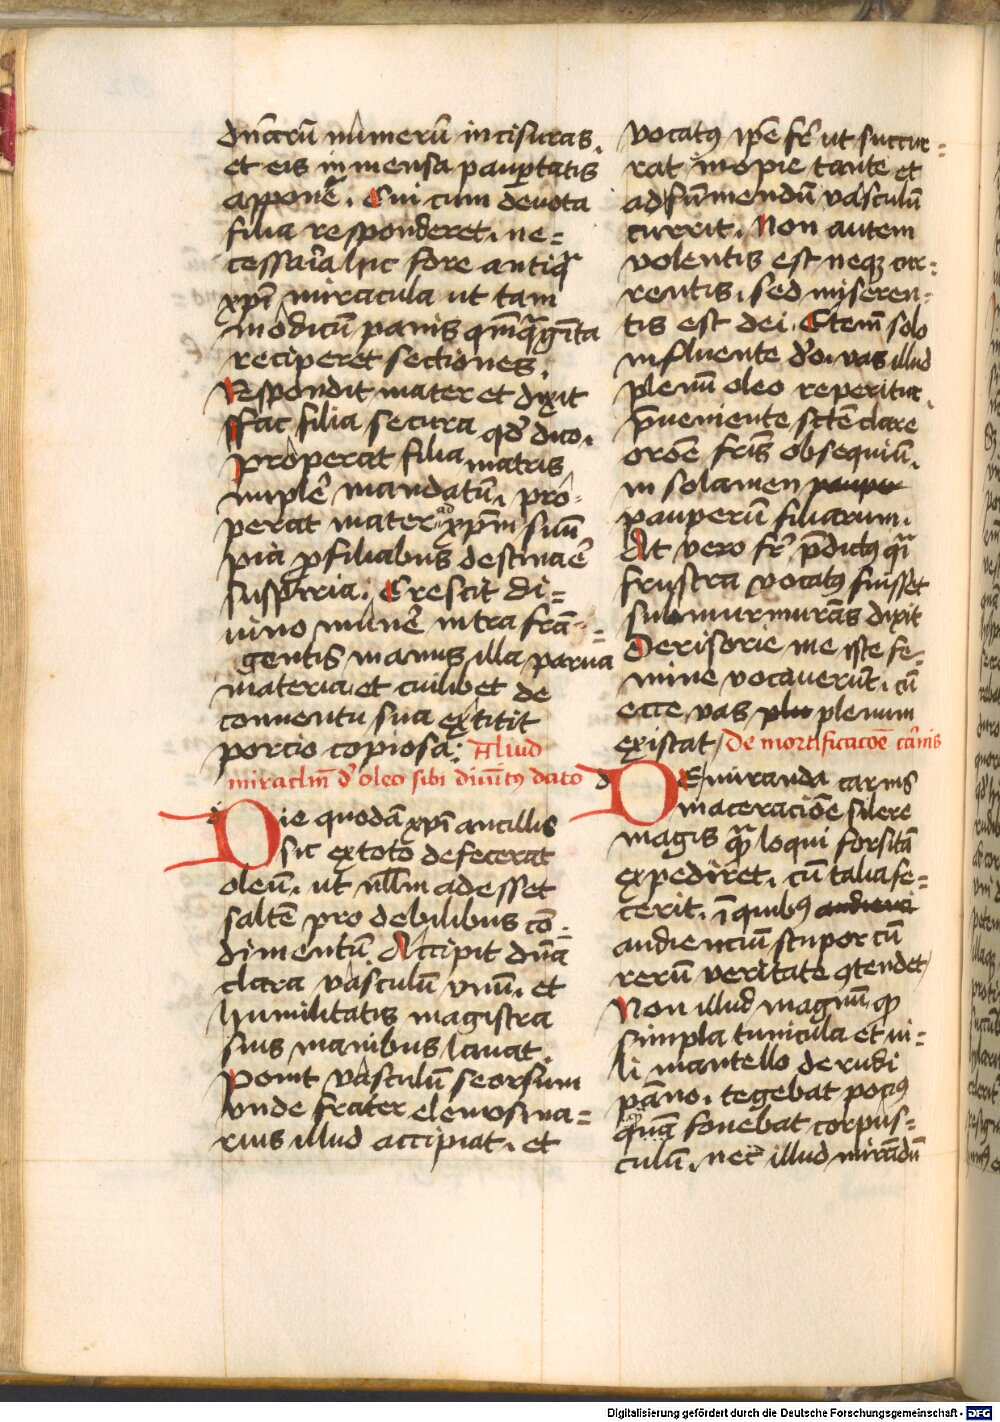 dnarū numerū incisuras.
et eis in mensa paup̄tatis
appone᷒. Cui cum deuota
filia responderet. ne=
cessaria hic fore antiq̄
xp̄i miracula ut tam
modicū panis qn̄q̄gīta
reciperet sectiones.
Respondit mater et dixit
ffac filia secura qd᷒ dico.
properat filia matris
imple᷒ mandatū. pro-
perat mater ad xp̄m suū
pia p filiabus destinae᷒
suspiria. Crescit di=
uino mune᷒ intra frā=
gentis manus illa parua
materia et cuilibet de
conuentu sua extitit
porcio copiosa: Aliud
miraclm̄ d᷒ oleo sibi diuīt᷒ dato
Die quodā xp̄i ancillis
sic ex toto defecerat
oleū. ut nll̄m adesset
saltē pro debilibus cō=
dimentū. Accipit dn̄a
clara vasculū vnū. et
humilitatis magistra
suis manibus lauat.
Ponit vasculū seorsum
vnde frater elemosina=
rius illud accipiat. et
vocatꝰ ip̄e fr̄ ut succur=
rat inopie tante et
ad sumendū vasculū
currit. Non autem
volentis est neqꝫ cur=
rentis. sed miseren-
tis est dei. Etem̄ solo
influente d᷒o. vas illud
plenū oleo reperitur.
p̄ueniente sctē clare
orōe fr̄is obsequiū.
in solamen pauper
pauperū filiarum.
At vero fr̄ p̄dictꝰ q̄i
frustra vocatꝰ fuisset
submurmurās dixit
Derisorie me iste fe-
mine vocauerūt. cū
ecce vas plu plenum
existat / De mortificacōe carnis
DE miranda carnis
maceracione silere
magis q̄ loqui forsitā
expediret. cū talia fe=
cerit. ī quibꝰ audienci
audienciū stupor cū
rerū veritate ꝯtendet /
Non illud magnū qꝫ
simpla tunicula et ui=
li mantello de rudi
pāno. tegebat pociꝰ
quā fouebat corpus=
culū. nec illud mirandū